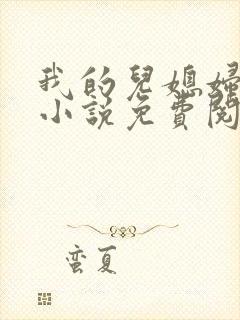 我的兒媳婦
小說免費閱
蛮夏